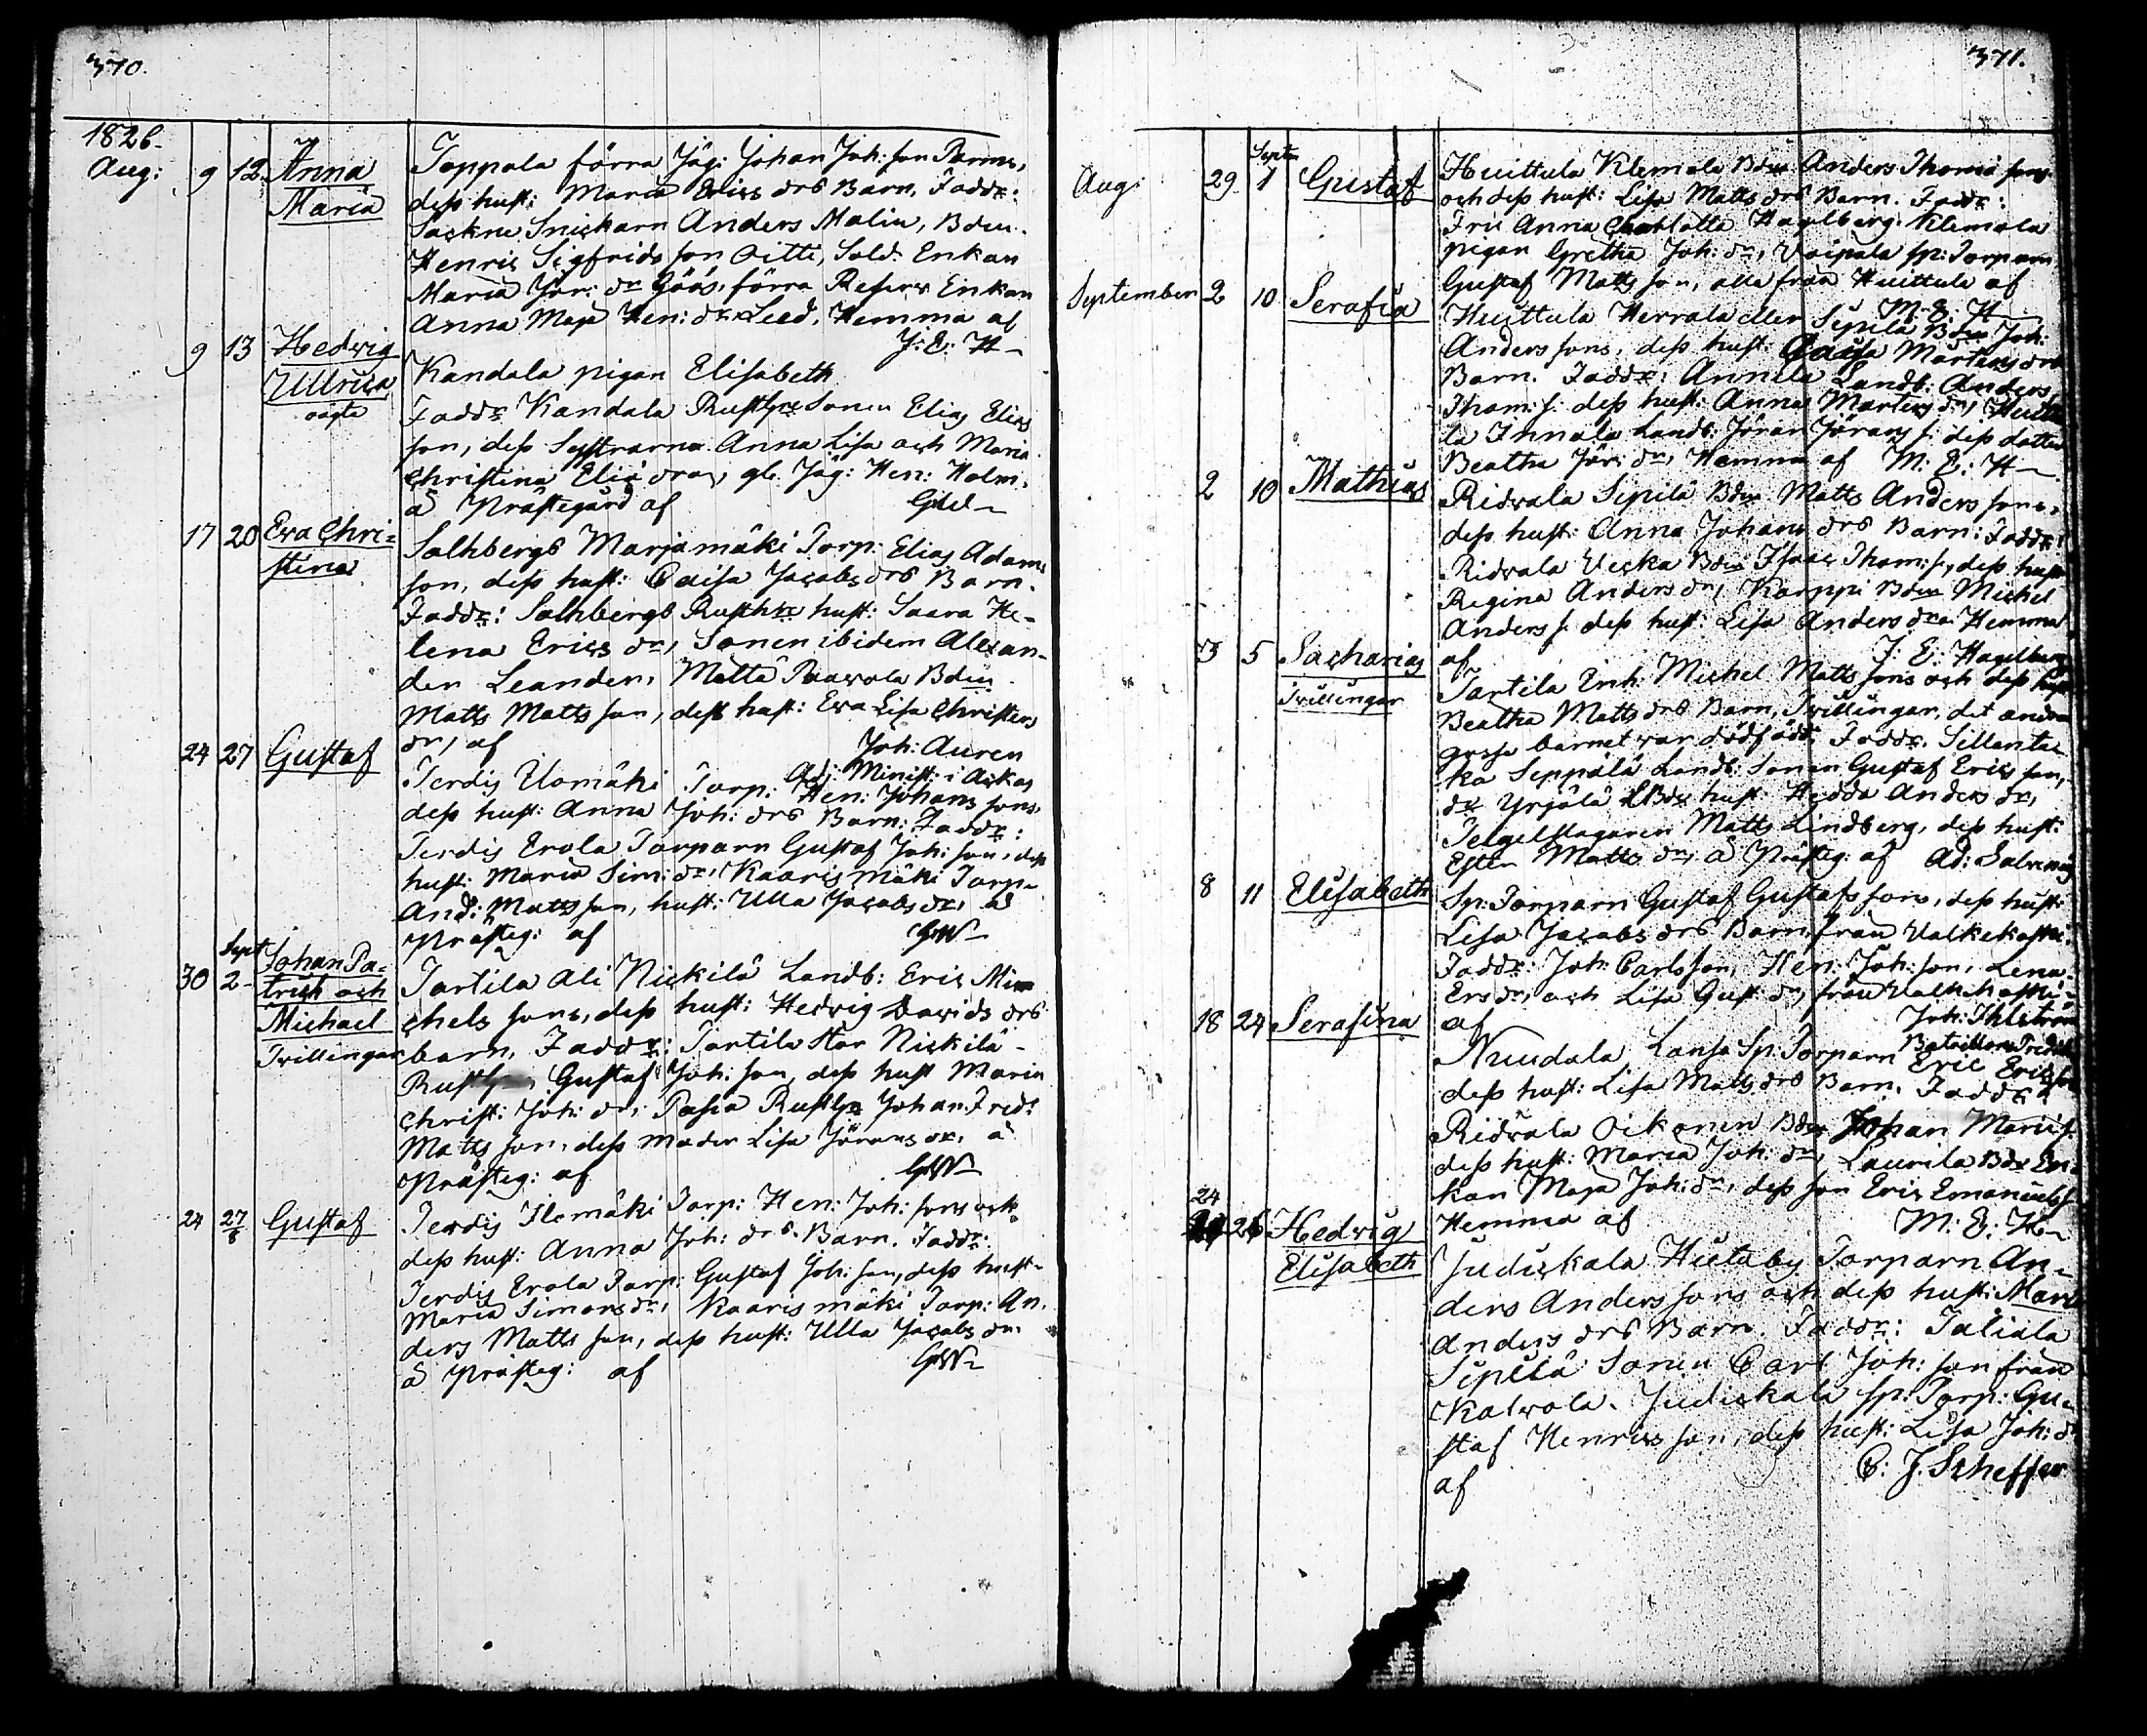 370.
1826.
Aug: 9 12 Anna
Maria
Toppola förra Jäg: Johan Joh: son Parm,
dess hust: Maria Erics drs Barn. Faddr:
Sockne Snickarn Anders Malin, Bden.
Henric Sigfrids son Oitti, Sold. Enkan
Maria Jör: dr Göös, förra Reserv Enkan
Anna Maja Hen: dr Leed, Hemma af
J: E: H
9 13 Hedvig
Ullrica
oägta
Kandala pigan Elisabeth
Faddr Kandala Rusth Sonen Elias Elias
son, dess Systrarna Anna Lisa och Maria
Christina Eliæ drar, gl. Jäg: Hen: Holm.
å Prästegård af
17 20 Eva Chri=
stina
Salhbergs Marjamäki Torp: Elias Adams
son, dess hust: Caisa Jacobs drs Barn.
Faddr: Salhbergs Rusthr hust: Saara He-
lena Erics dr, Sonen ibidem Alexan-
der Leander, Mälta Paavola Bden
Matts Matts son, dess hust: Eva Lisa Christers
dr, af Joh: Auren
Adj: Minist: i Ackas
24 27 Gustaf
Terdis Uomäki Torp: Hen: Johans sons
dess hust: Anna Joh: drs Barn: Faddr:
Terdis Erola Torparn Gustaf Joh: son, dess
hust: Maria Sim: dr, Kaarismäki Torp-
And: Matts son, hust: Ulla Jacobs dr, å
Prästeg: af GW
30 Sept 2 Johan Pa=
trich och
Michael
Tvillingar
Tartila Ali Nickilä Landb: Eric Mi
chels sons, dess hust: Hedvig Davids drs
barn. Faddr: Tartila Stor Nickilä
Rusth Gustaf Joh: son, dess hust Maria
Christ: Joh: dr, Pasia Rusthr Johan Fred:
Matts son, dess moder Lisa Jörans dr, å
Prästeg: af GW
24 27/8 Gustaf
Terdis Ilomäki Torp: Hen: Joh: sons och
dess hust: Anna Joh: drs. Barn. Faddr:
Terdis Erola Torp: Gustaf Joh: son, dess hust-
Maria Simons dr, Kaarismäki Torp: An.
ders Matts son, dess hust: Ulla Jacobs dr.
å Prästeg: af GW
371.
Aug: 29 Septem 1 Gustaf
Huittula Klemola Bden Anders Thomæ sons
och dess hust: Lisa Matts drs Barn. Faddr:
Fru Anna Charlotta Hagelberg. Klemola
pigan Gretha Joh: dr, Voipala sp: Torparn
Gustaf Matts son, alla från Huittula af
M: E: H
September 2 10 Serafia
Huittula Herrala eller Sepilä Bden Joh:
Anders sons, dess hust: Caisa Mårtens drs
Barn. Faddr: Annila Landb: Anders
Thom: s. dess hust: Anna Mårtens dr, Huittu
la Ihnala Landb: Jöran Jörans s: dess dotter
Beatha Jör: dr, Hemma af M: E: H
2 10 Mathias
Ridvala Sepilä Bden Matts Anders sons,
dess hust: Anna Johans drs Barn: Faddr:
Ridvala Uecka Bden Isaac Thom: s, dess hust
Regina Anders dr, Karppi Bden Michel
Anders s. dess hust: Lisa Anders dra Hemma
af J: E: Hagelberg
3 5 Sacharias
Tvillingar
Tartila Inh: Michel Matts sons och dess hust
Beatha Matts drs Barn, Tvillingar, det andra
gosse barnet var dödfödt. Faddr. Sillanta
ka Seppälä Landb: Sonen Gustaf Erics son,
dr Yrjölä Bdr hust: Hedda Anders dr,
Tegelslagaren Matts Lindberg, dess hust:
Ester Matts dr, å Prästeg: af Ad: Salvenius
8 11 Elisabeth
Sp: Torparn Gustaf Gustafs sons, dess hust:
Lisa Jacobs drs Barn, från Valkekoski.
Faddr: Joh: Carlsson, Hen: Joh: son, Lena
Ers dr, och Lisa Gust: dr, från Valkekoski
af Joh: Ihlström
Bataillons Predik
18 24 Serafina
Nuudala Lansa Sp: Torparn Eric Ericsson
dess hust: Lisa Matts drs Barn. Faddr.
Ridvala Oikonen Bden Johan Marii s.
dess hust: Maria Joh: dr, Laurila Bdr En
kan Maja Joh: dr, dess son Eric Emanuels s
Hemma af M: E: H
24 26 Hedvig
Elisabeth
Judickala Huitaby Torparn An-
ders Anders sons och dess hust: Maria
Anders drs Barn. Faddr: Taliala
Sepilä Sonen Carl Joh: son från
Kalvola. Judickala sp: Torp: Gu-
staf Henrics son, dess hust: Lisa Joh: dr
af C: J. Scheffer